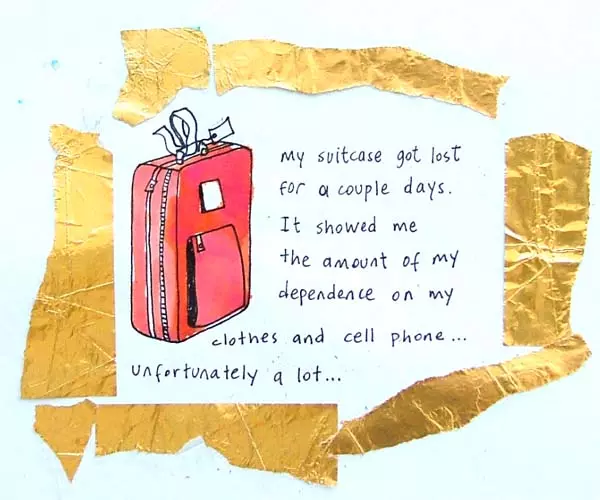 My suitcase got lost
for a couple days.
It showed me
the amount of my
dependence on my
clothes and cell phone...
unfortunately a lot...